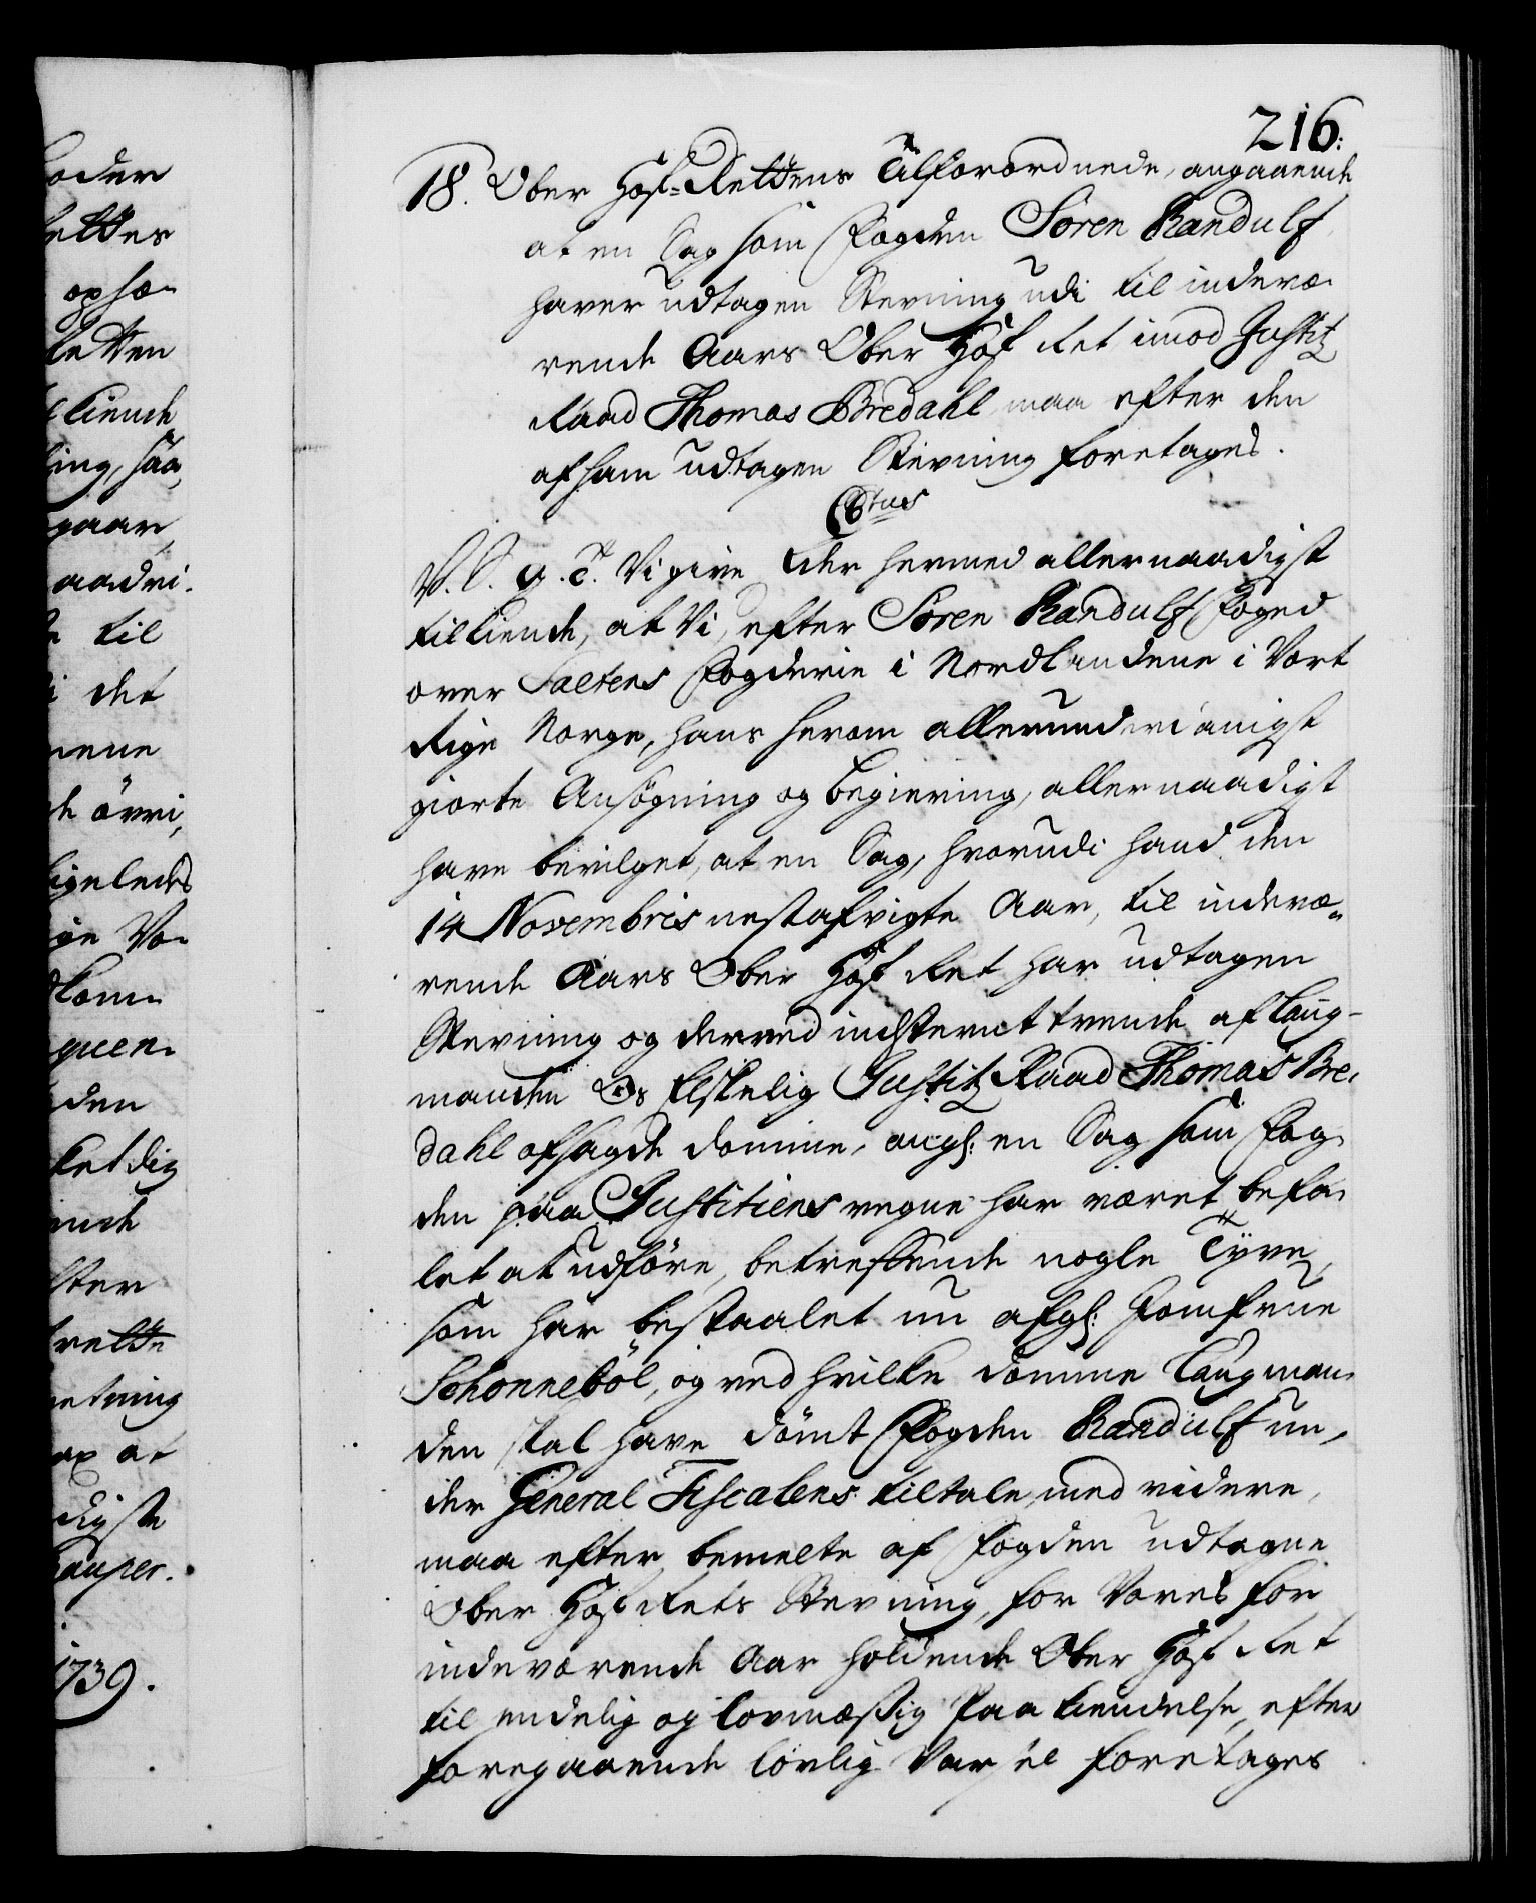 216.
18. Ober Hof-Rettens Tilforordnede, angaaende
at en Sag som Fogden Sören Randulf
haver udtagen Stevning udi til indevæ-
rende Aars Ober Hof Ret imod Justitz
Raad Thomas Bredahl maa efter den
af ham udtagen Stevning foretages.
V. S. G. T. Vi give Eder hermed allernaadigst
tilkiende, at Vi, efter Sören Randulf Foged
over Saltens Fogderie i Nordlandene i Vort
Rige Norge, hans herom allerunderdanigst
giorte Ansögning og begiering, allernaadigst
have bevilget, at en Sag, hvorudi hand den
14 Novembris nestafvigte Aar, til indevæ-
rende Aars Ober Hof Ret har udtagen
Stevning og derved indstevnt trende af Laug-
manden Os Elskelig Justitz Raad Thomas Bre-
dahl afsagde Domme, angl: en Sag som Fog-
den paa Justitiens vegne har været befa-
let at udföre, betreffende nogle Tyve,
som har bestaalet nu afgl: Jomfrue
Schonneböl, og ved hvilke Domme Laugman-
den skal have dömt Fogden Randulf un-
der General Fiscalens tiltale, med videre,
maa efter bemelte af Fogden udtagne
Ober Hof Rets Stevning, for Vores for
indeværende Aar holdende Ober Hof Ret
til endelig og lovmæssig Paakiendelse, efter
foregaaende lovlig Varsel foretages
oder
ettes
ophæ-
etten
kiende
ing, saa
gaar
aadri-
til
det
nene
de övri
igeledes
ige Vo-
kom-
queen-
den
ket dig
ende
fter
rette
etning
op at
digste
Cauper.
1739.